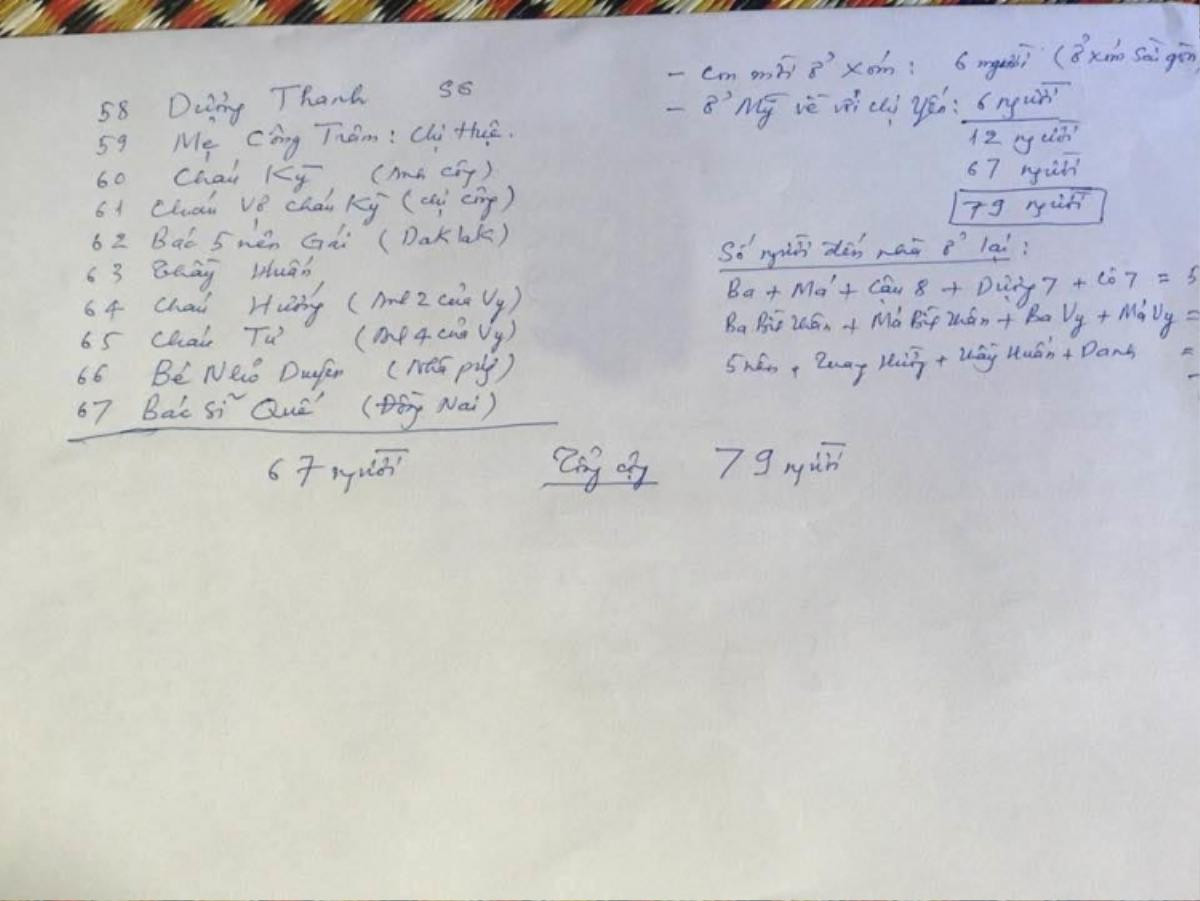 58 Dượng Thanh SG
59 Mẹ Công Trâm: Chị Huệ.
60 Cháu Kỳ (Anh công)
61 Cháu Vợ cháu Kỳ (chị công)
62 Bác 5 nên Gái (DakLak)
63 Thầy Huấn
64 Cháu Hướng (Anh 2 của Vy)
65 Cháu Tư (Anh 4 của Vy)
66 Bé Nhỏ Duyên (Nhà phụ)
67 Bác Sĩ Quế (Đồng Nai)
67 người
Tổng cộng 79 người
- Con mời ở xóm: 6 người (ở xóm Sài gòn
- Ở Mỹ về với chị Yến: 6 người
12 người
67 người
79 người
Số người đến nhà ở lại:
Ba + Má + Cậu 8 + Dượng 7 + Cô 7 = 5
Ba + Má + Ba Vy + Má Vy =
5 nên, + Thầy Huấn + Danh =